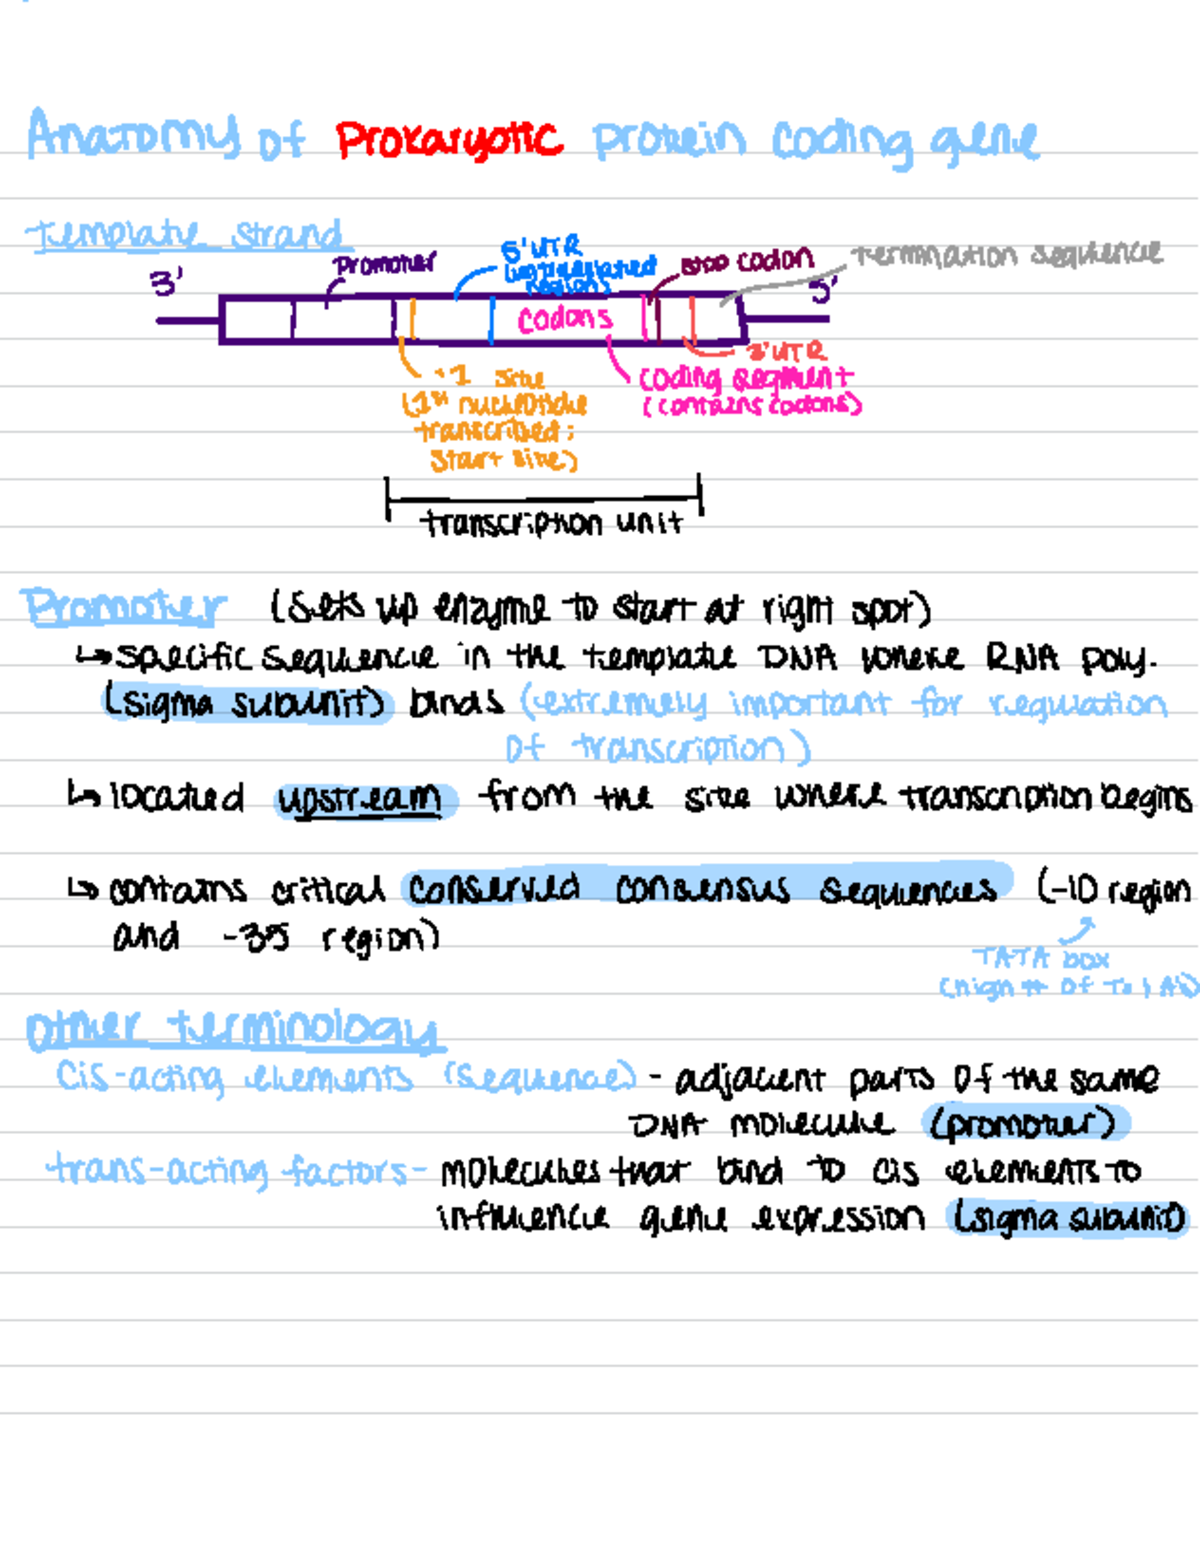 Anatomy of Prokaryotic protein coding gene
Template strand
3'
promoter
5'UTR
(untranslated
regions)
stop codon
termination sequence
5'
codons
+1 site
(1st nucleotide
transcribed;
start site)
3'UTR
coding segment
(contains codons)
transcription unit
Promoter (sets up enzyme to start at right spot)
↳ specific sequence in the template DNA where RNA poly.
(sigma subunit) binds (extremely important for regulation
of transcription)
↳ located upstream from the site where transcription begins
↳ contains critical conserved consensus sequences (-10 region
and -35 region)
TATA box
(high # of Ts & As)
other terminology
Cis-acting elements (sequence) - adjacent parts of the same
DNA molecule (promoter)
trans-acting factors - molecules that bind to cis elements to
influence gene expression (sigma subunit)